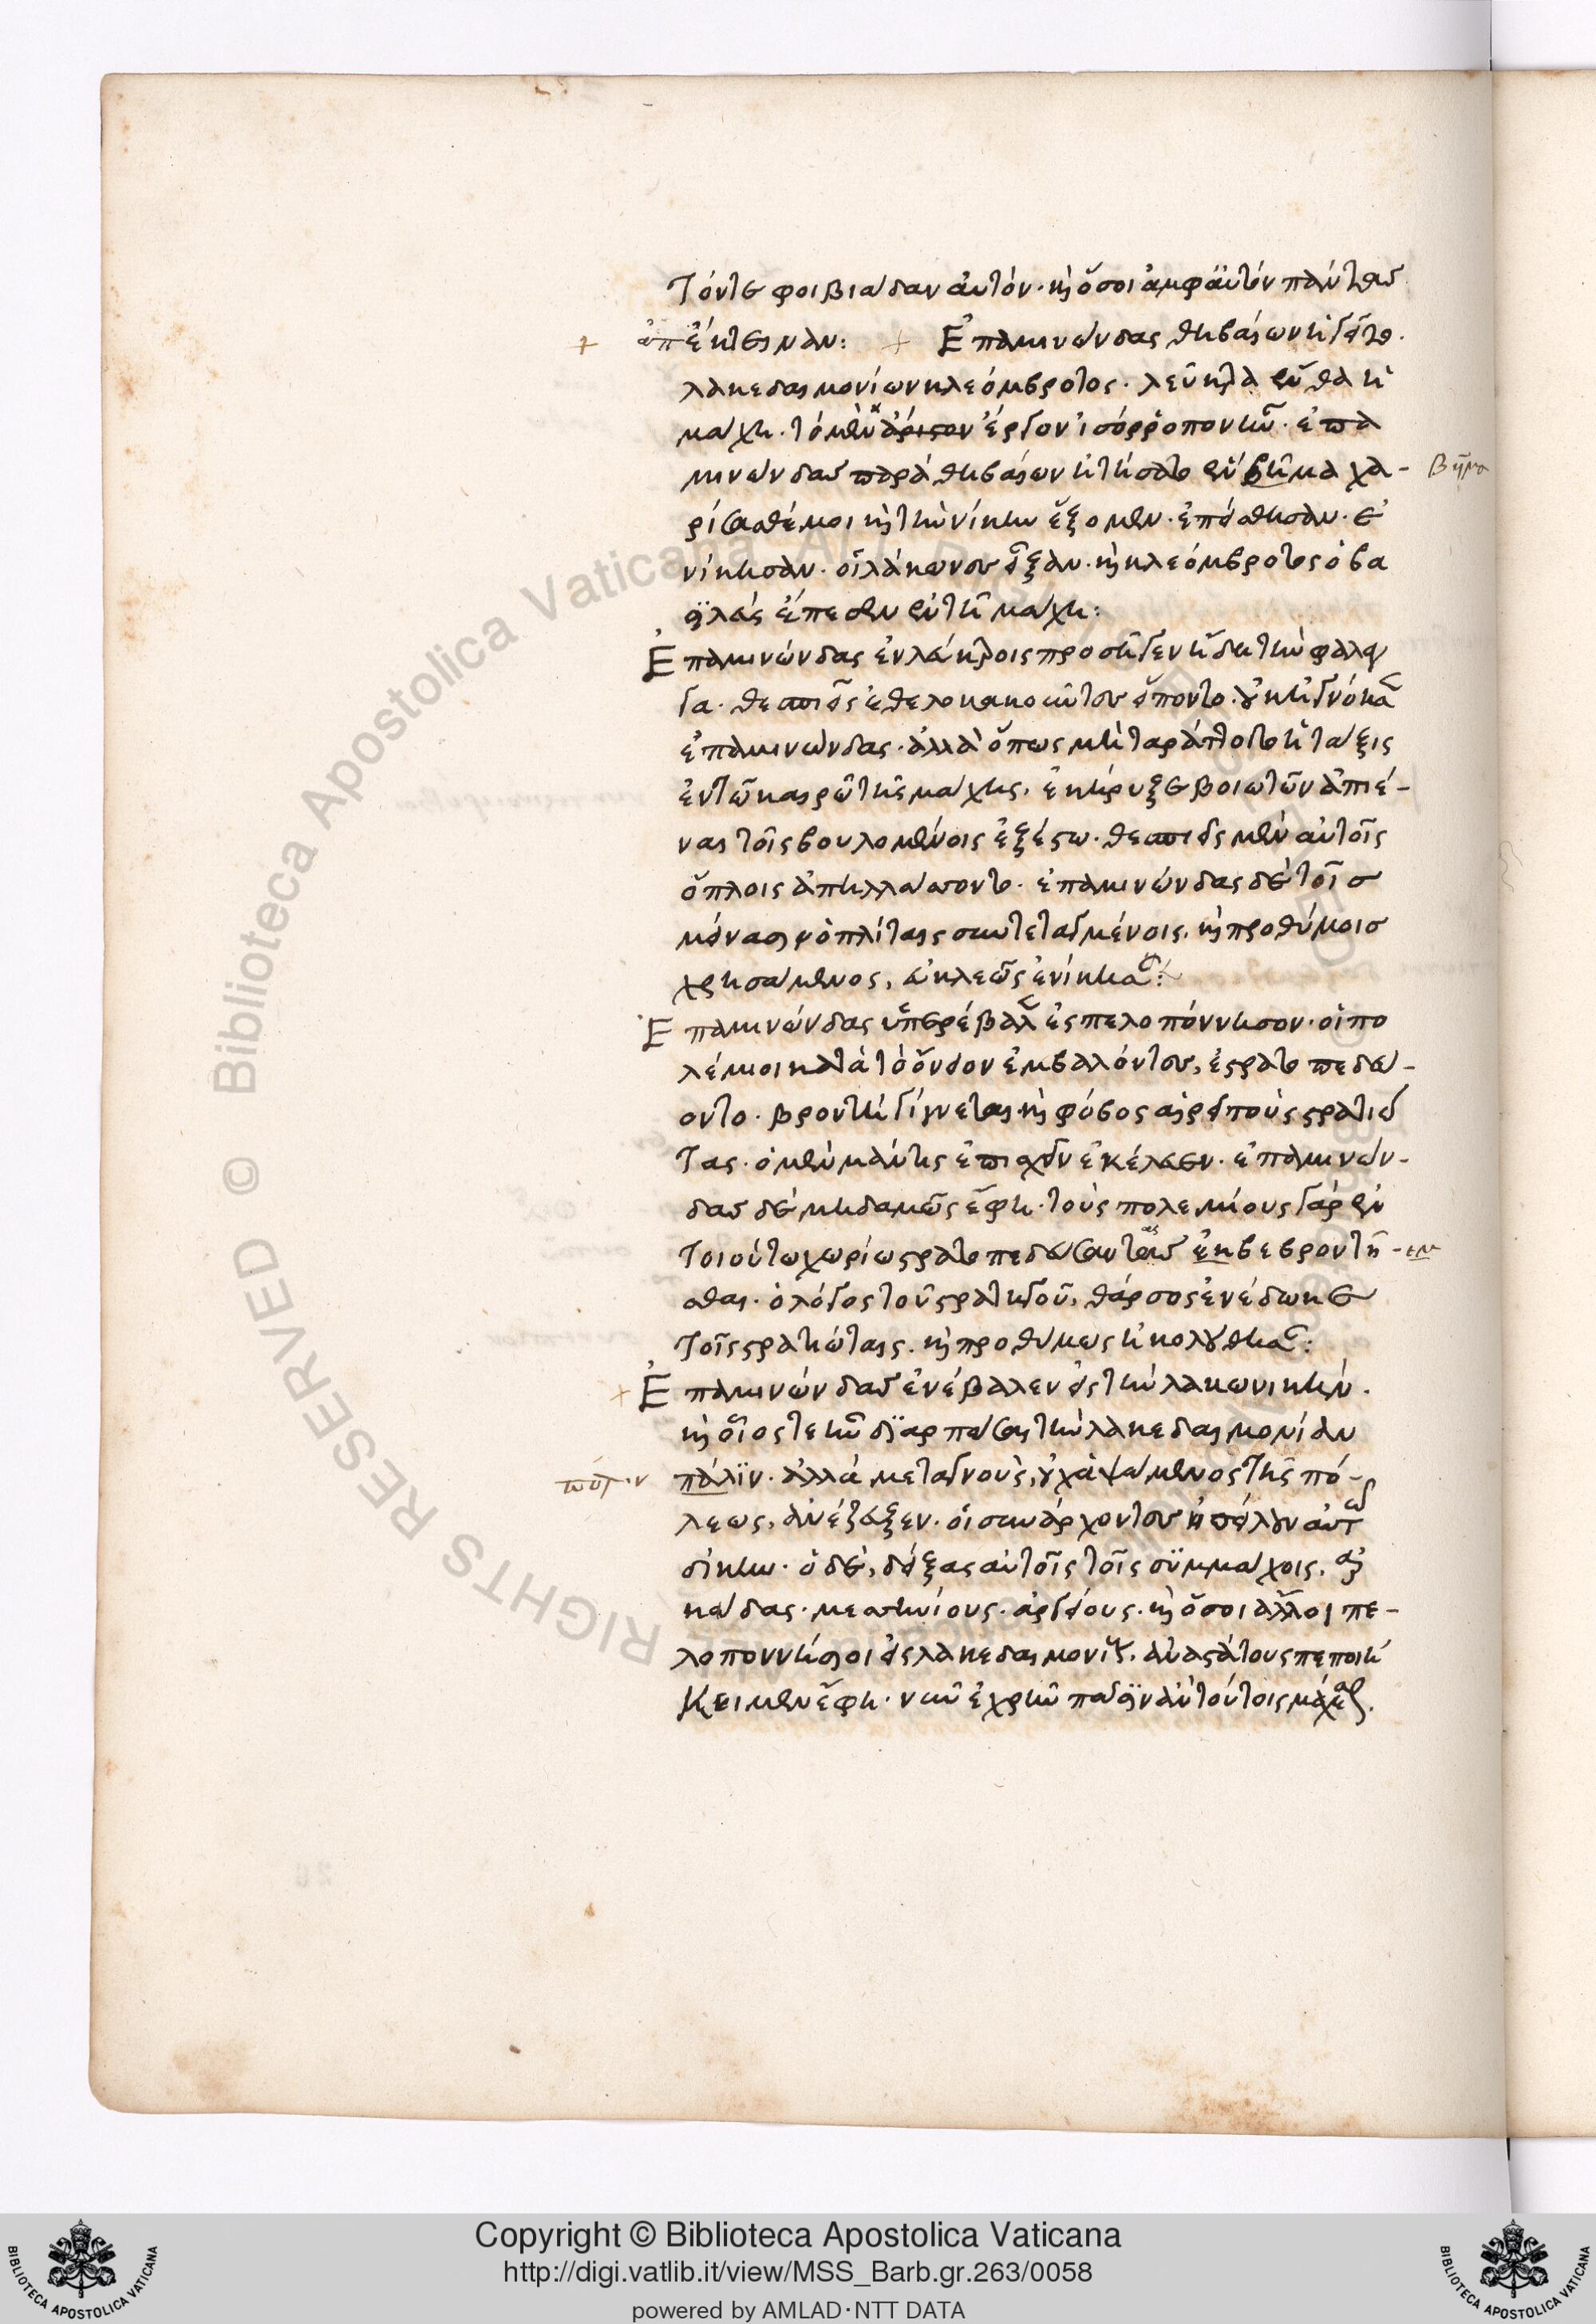 Τόντε φοιβιάδαν αὐτόν· καὶ ὅσοι ἀμφ' αὐτὸν πάντας
ἀπέκτειναν: Ἐπαμινώνδας θηβαίων ἡγεῖτο·
λακεδαιμονίων κλεόμβροτος· λεῦκτρα ἔνθα ἡ
μάχη· τὸ μὲν ἄριστον ἔργον ἰσόρροπον ἦν· ἐπα
μινώνδας παρὰ θηβαίων ἠτήσατο ἓν βῆμα χα-
ρίσασθέ μοι καὶ τὴν νίκην ἕξομεν· ἐπείσθησαν· ἐ
νίκησαν· οἱ λάκωνες εἶξαν· καὶ κλεόμβροτος ὁ βα
σιλεὺς ἔπεσεν ἐν τῇ μάχῃ:
Ἐπαμινώνδας ἐν λεύκτροις προσῆγεν ἤδη τὴν φάλαγ
γα· θεσπιεῖς ἐθελοκακοῦντες εἵποντο· οὐκ ἠγνόησεν
ἐπαμινώνδας· ἀλλ' ὅπως μὴ ταράττοιτο ἡ τάξις
ἐν τῷ καιρῷ τῆς μάχης, ἐκήρυξε βοιωτῶν ἀπιέ-
ναι τοῖς βουλομένοις ἐξέστω· θεσπιεῖς μὲν αὐτοῖς
ὅπλοις ἀπηλλάσσοντο· ἐπαμινώνδας δὲ τοῖς
μείνασιν ὁπλίταις συντεταγμένοις, καὶ προθύμοις
χρησάμενος, εὐκλεῶς ἐνίκησεν:
Ἐπαμινώνδας ὑπερέβαλεν ἐς πελοπόννησον· οἱ πο
λέμιοι κατὰ τὸ ὄνειον ἐμβαλόντες, ἐστρατοπεδεύ-
οντο· βροντὴ γίγνεται καὶ φόβος αἱρεῖ τοὺς στρατιώ
τας· ὁ μὲν μάντης ἐπισχεῖν ἐκέλευεν· ἐπαμινών-
δας δὲ μηδαμῶς ἔφη· τοὺς πολεμίους γὰρ ἐν
τοιούτω χωρίω στρατοπεδεύσαντας ἐκβεβροντῆ- ἐμ
σθαι· ὁ λόγος τοῦ στρατηγοῦ, θάρσος ἐνέδωκε
τοῖς στρατιώταις· καὶ προθύμως ἠκολούθησαν:
Ἐπαμινώνδας ἐνέβαλεν εἰς τὴν λακωνικήν·
καὶ οἷός τε ἦν διαρπάσαι τὴν λακεδαιμονίαν
πάλιν· ἀλλὰ μεταγνοὺς, οὐχ ἁψάμενος τῆς πό-
λεως, ἀνέζευξεν· οἱ συνάρχοντες ἠπείλουν αὐτῷ
δίκην· ὁ δὲ, δείξας αὐτοῖς τοῖς συμμάχοις, ἀρ
κάδας· μεσσηνίους· ἀργείους· καὶ ὅσοι ἄλλοι πε-
λοποννήσιοι εἰς λακεδαιμονίους ἀναστάτους πεποιή
κειμεν ἔφη· νῦν ἐχρῆν πᾶσιν ἂν τούτοις μάχεσθαι.
βῆμα
πόλιν
Copyright © Biblioteca Apostolica Vaticana
http://digi.vatlib.it/view/MSS_Barb.gr.263/0058
powered by AMLAD·NTT DATA
BIBLIOTECA APOSTOLICA VATICANA
BIBLIOTECA APOSTOLICA VATICANA
© Biblioteca Apostolica Vaticana ALL RIGHTS RESERVED